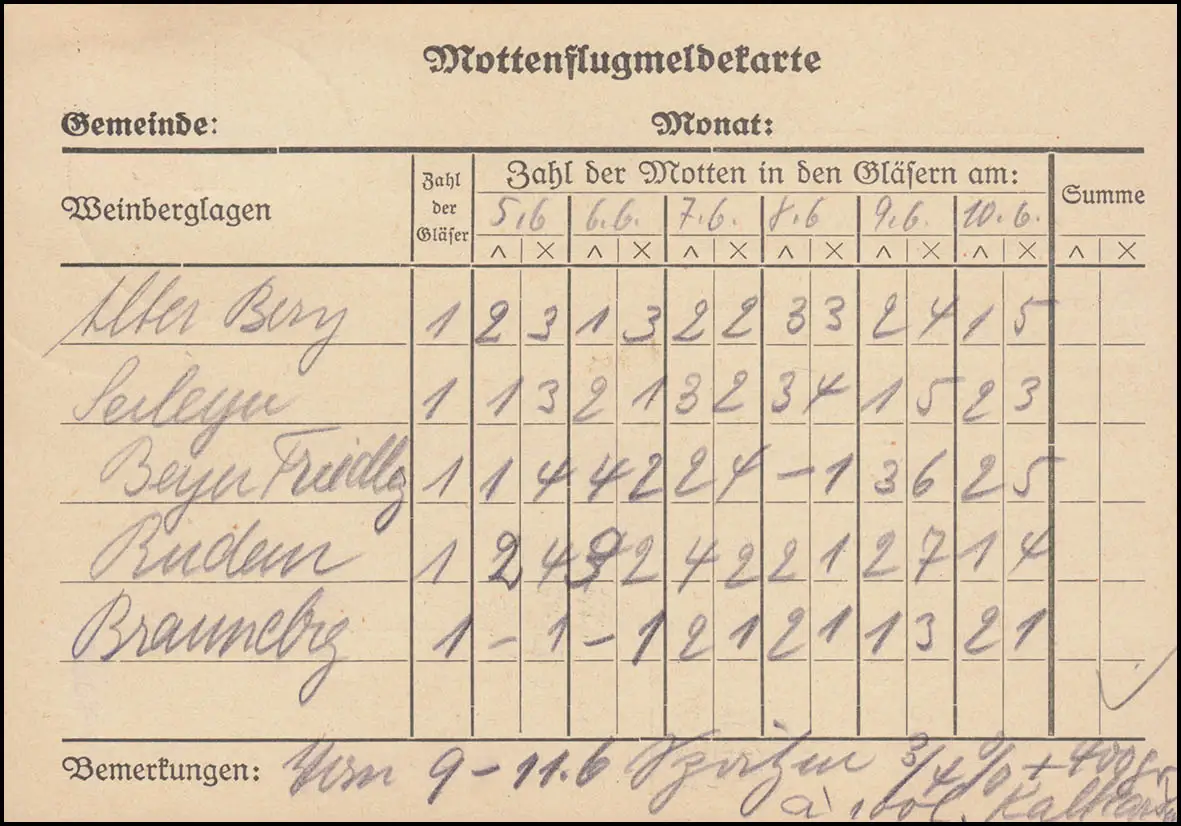 Mottenflugmeldekarte
Gemeinde: Monat:
Weinberglagen Zahl der Gläser Zahl der Motten in den Gläsern am: Summe
5.6 6.6. 7.6. 8.6 9.6. 10.6.
^ × ^ × ^ × ^ × ^ × ^ × ^ ×
Alter Berg 1 2 3 1 3 2 2 3 3 2 4 1 5
1 1 3 2 1 3 2 3 4 1 5 2 3
1 1 4 4 2 2 4 - 1 3 6 2 5
1 2 4 2 4 2 2 1 2 7 1 4
Braunebrg 1 - 1 - 1 2 1 2 1 1 3 2 1
Bemerkungen: Vom 9 - 11.6 3/4 % + 400 gr
à 100 l.